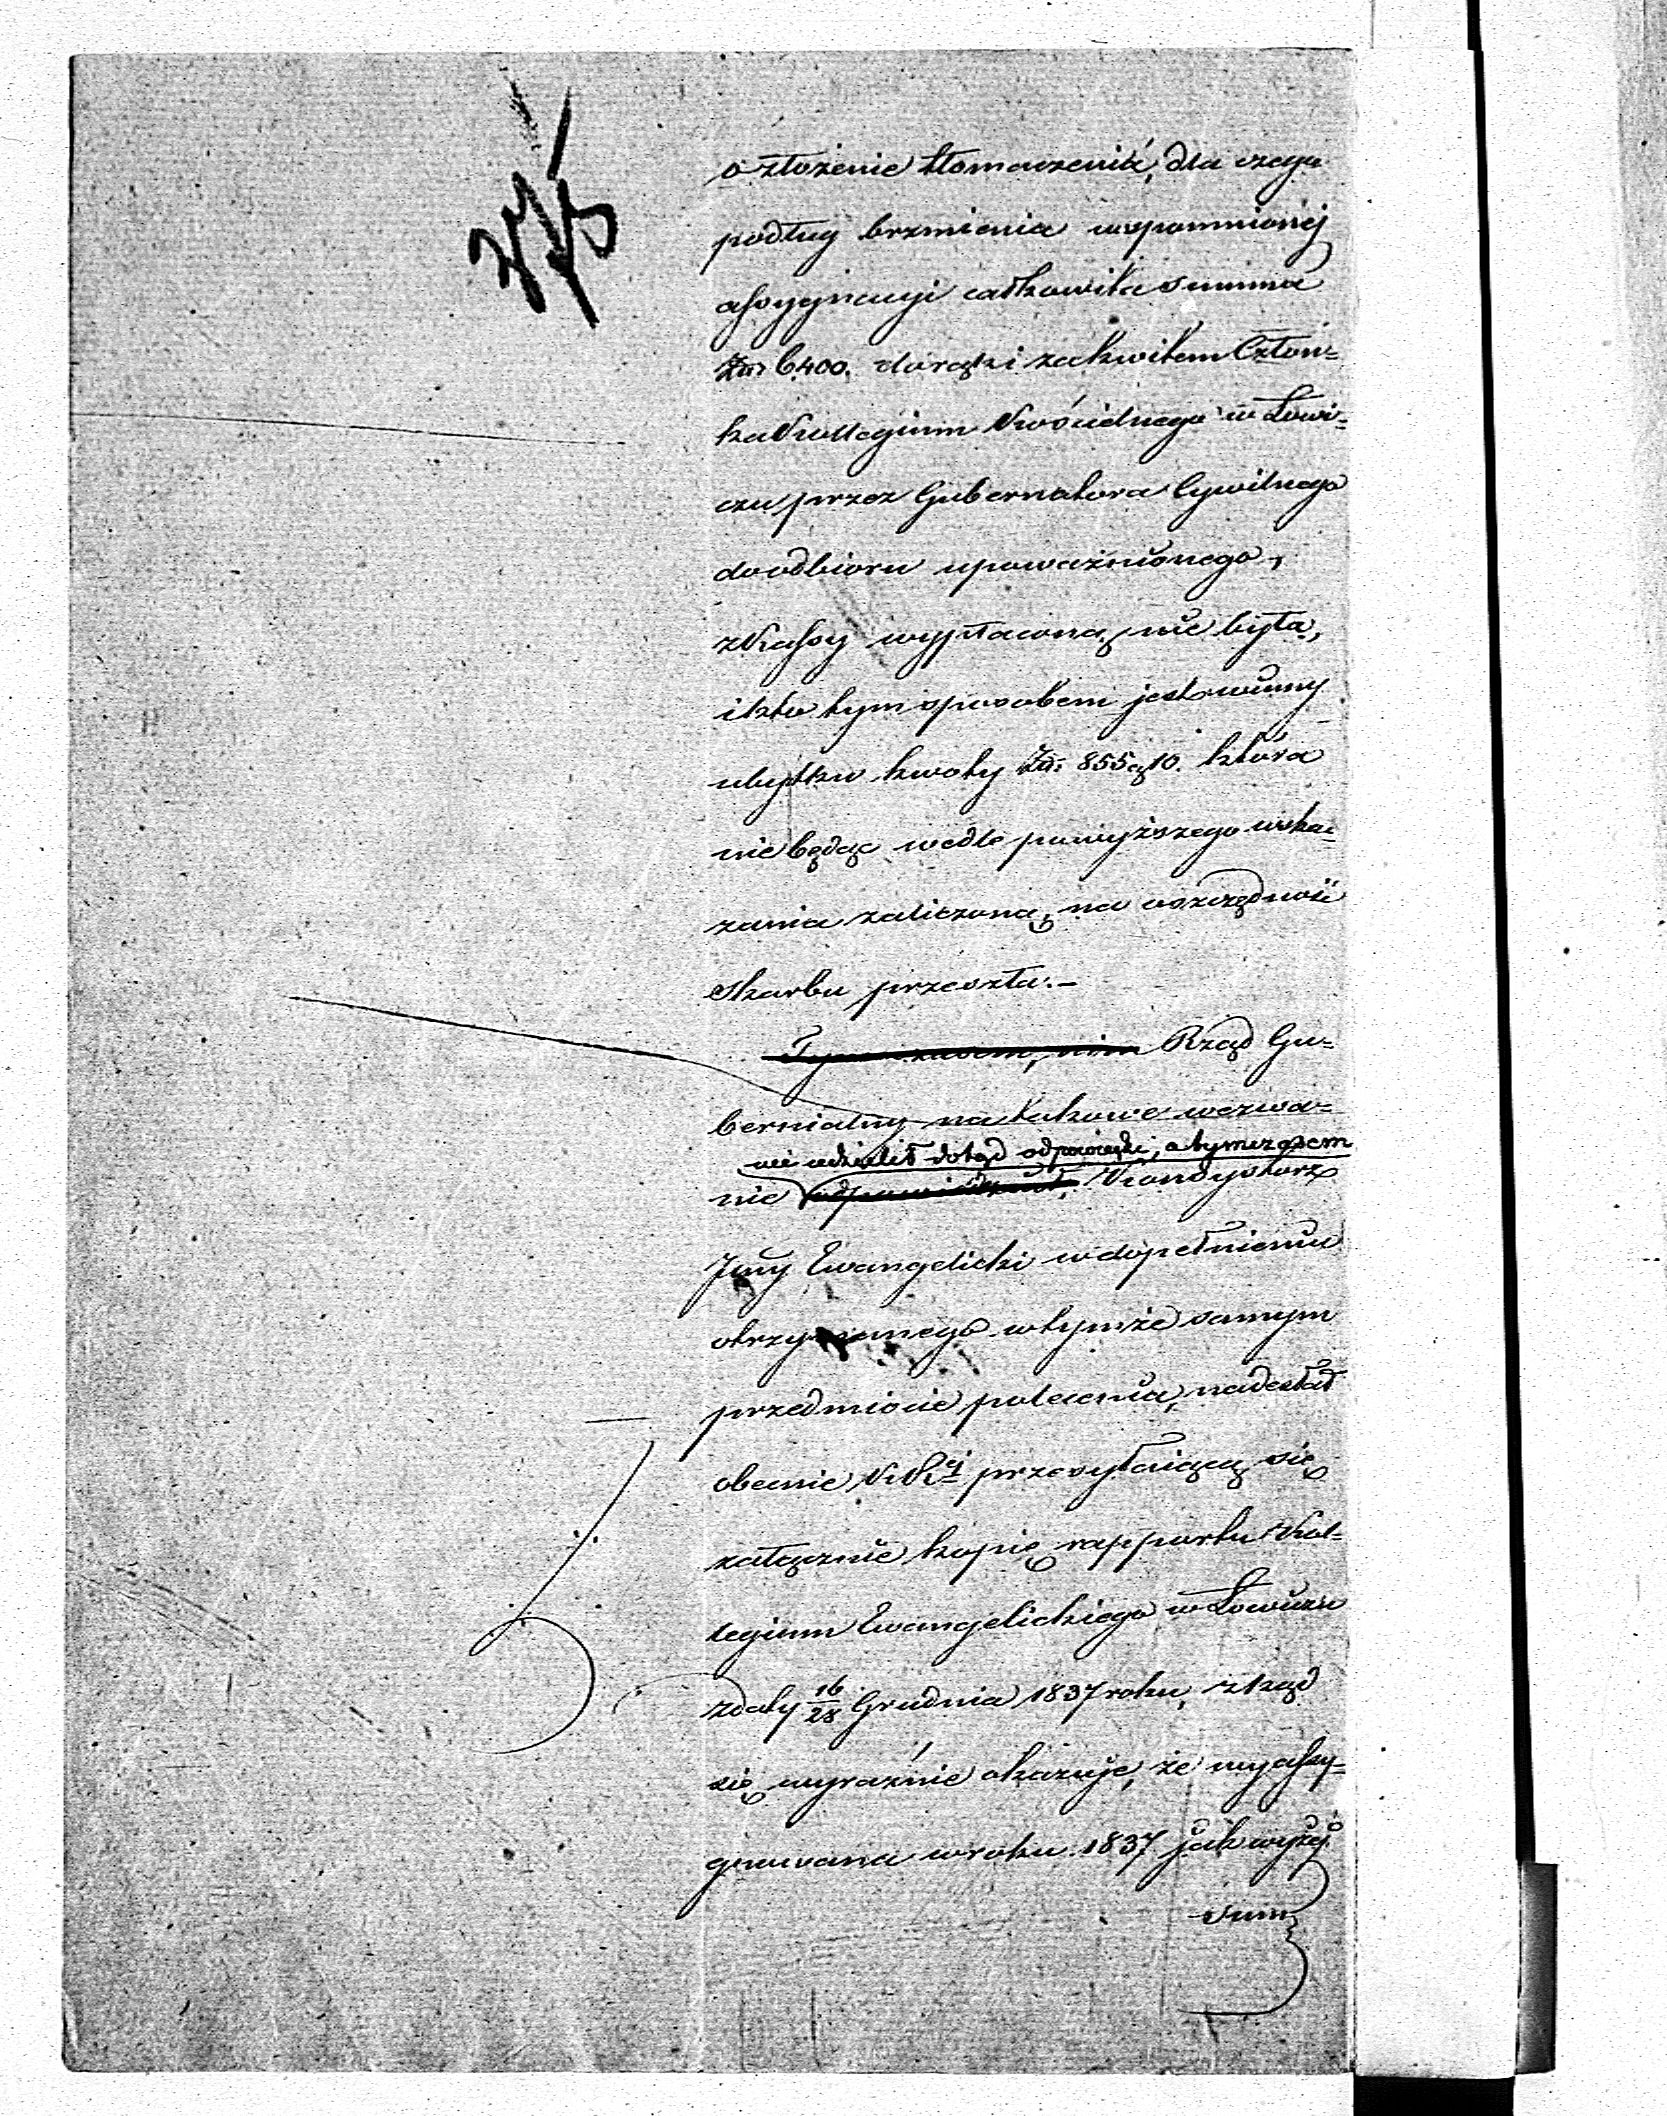 o złożenie tłomaczenia, dla czego
podług brzmienia wspomnionéj
assygnacyi całkowita summa
Złp. 6,400. do rąk i za kwitem Człon=
ka Kollegium Kościelnego w Łowi=
czu przez Gubernatora Cywilnego
do odbioru upoważnionego,
z Kassy wypłaconą nie była,
i kto tym sposobem jest winny
ubytku kwoty Złp. 855 g 10. która
nie będąc wedle powyższego wska=
zania zaliczoną, na oszczędność
Skarbu przeszła.—
Tymczasem, nim Rząd Gu=
bernialny na takowe wezwa=
nie udzielił dotąd odpowiedzi, a tymczasem
nie Konsystorz
Jlny Ewangelicki w dopełnieniu
otrzymanego w tymże samym
przedmiocie polecenia, nadesłał
obecnie K. R i przesyłaiącą się
załącznie kopię rapportu Kol=
legium Ewangelickiego w Łowiczu
z daty 16/28 Grudnia 1837 roku, z kąd
się wyraźnie okazuje, że wyassy=
gnowana w roku 1837 jak wyżej
Sum